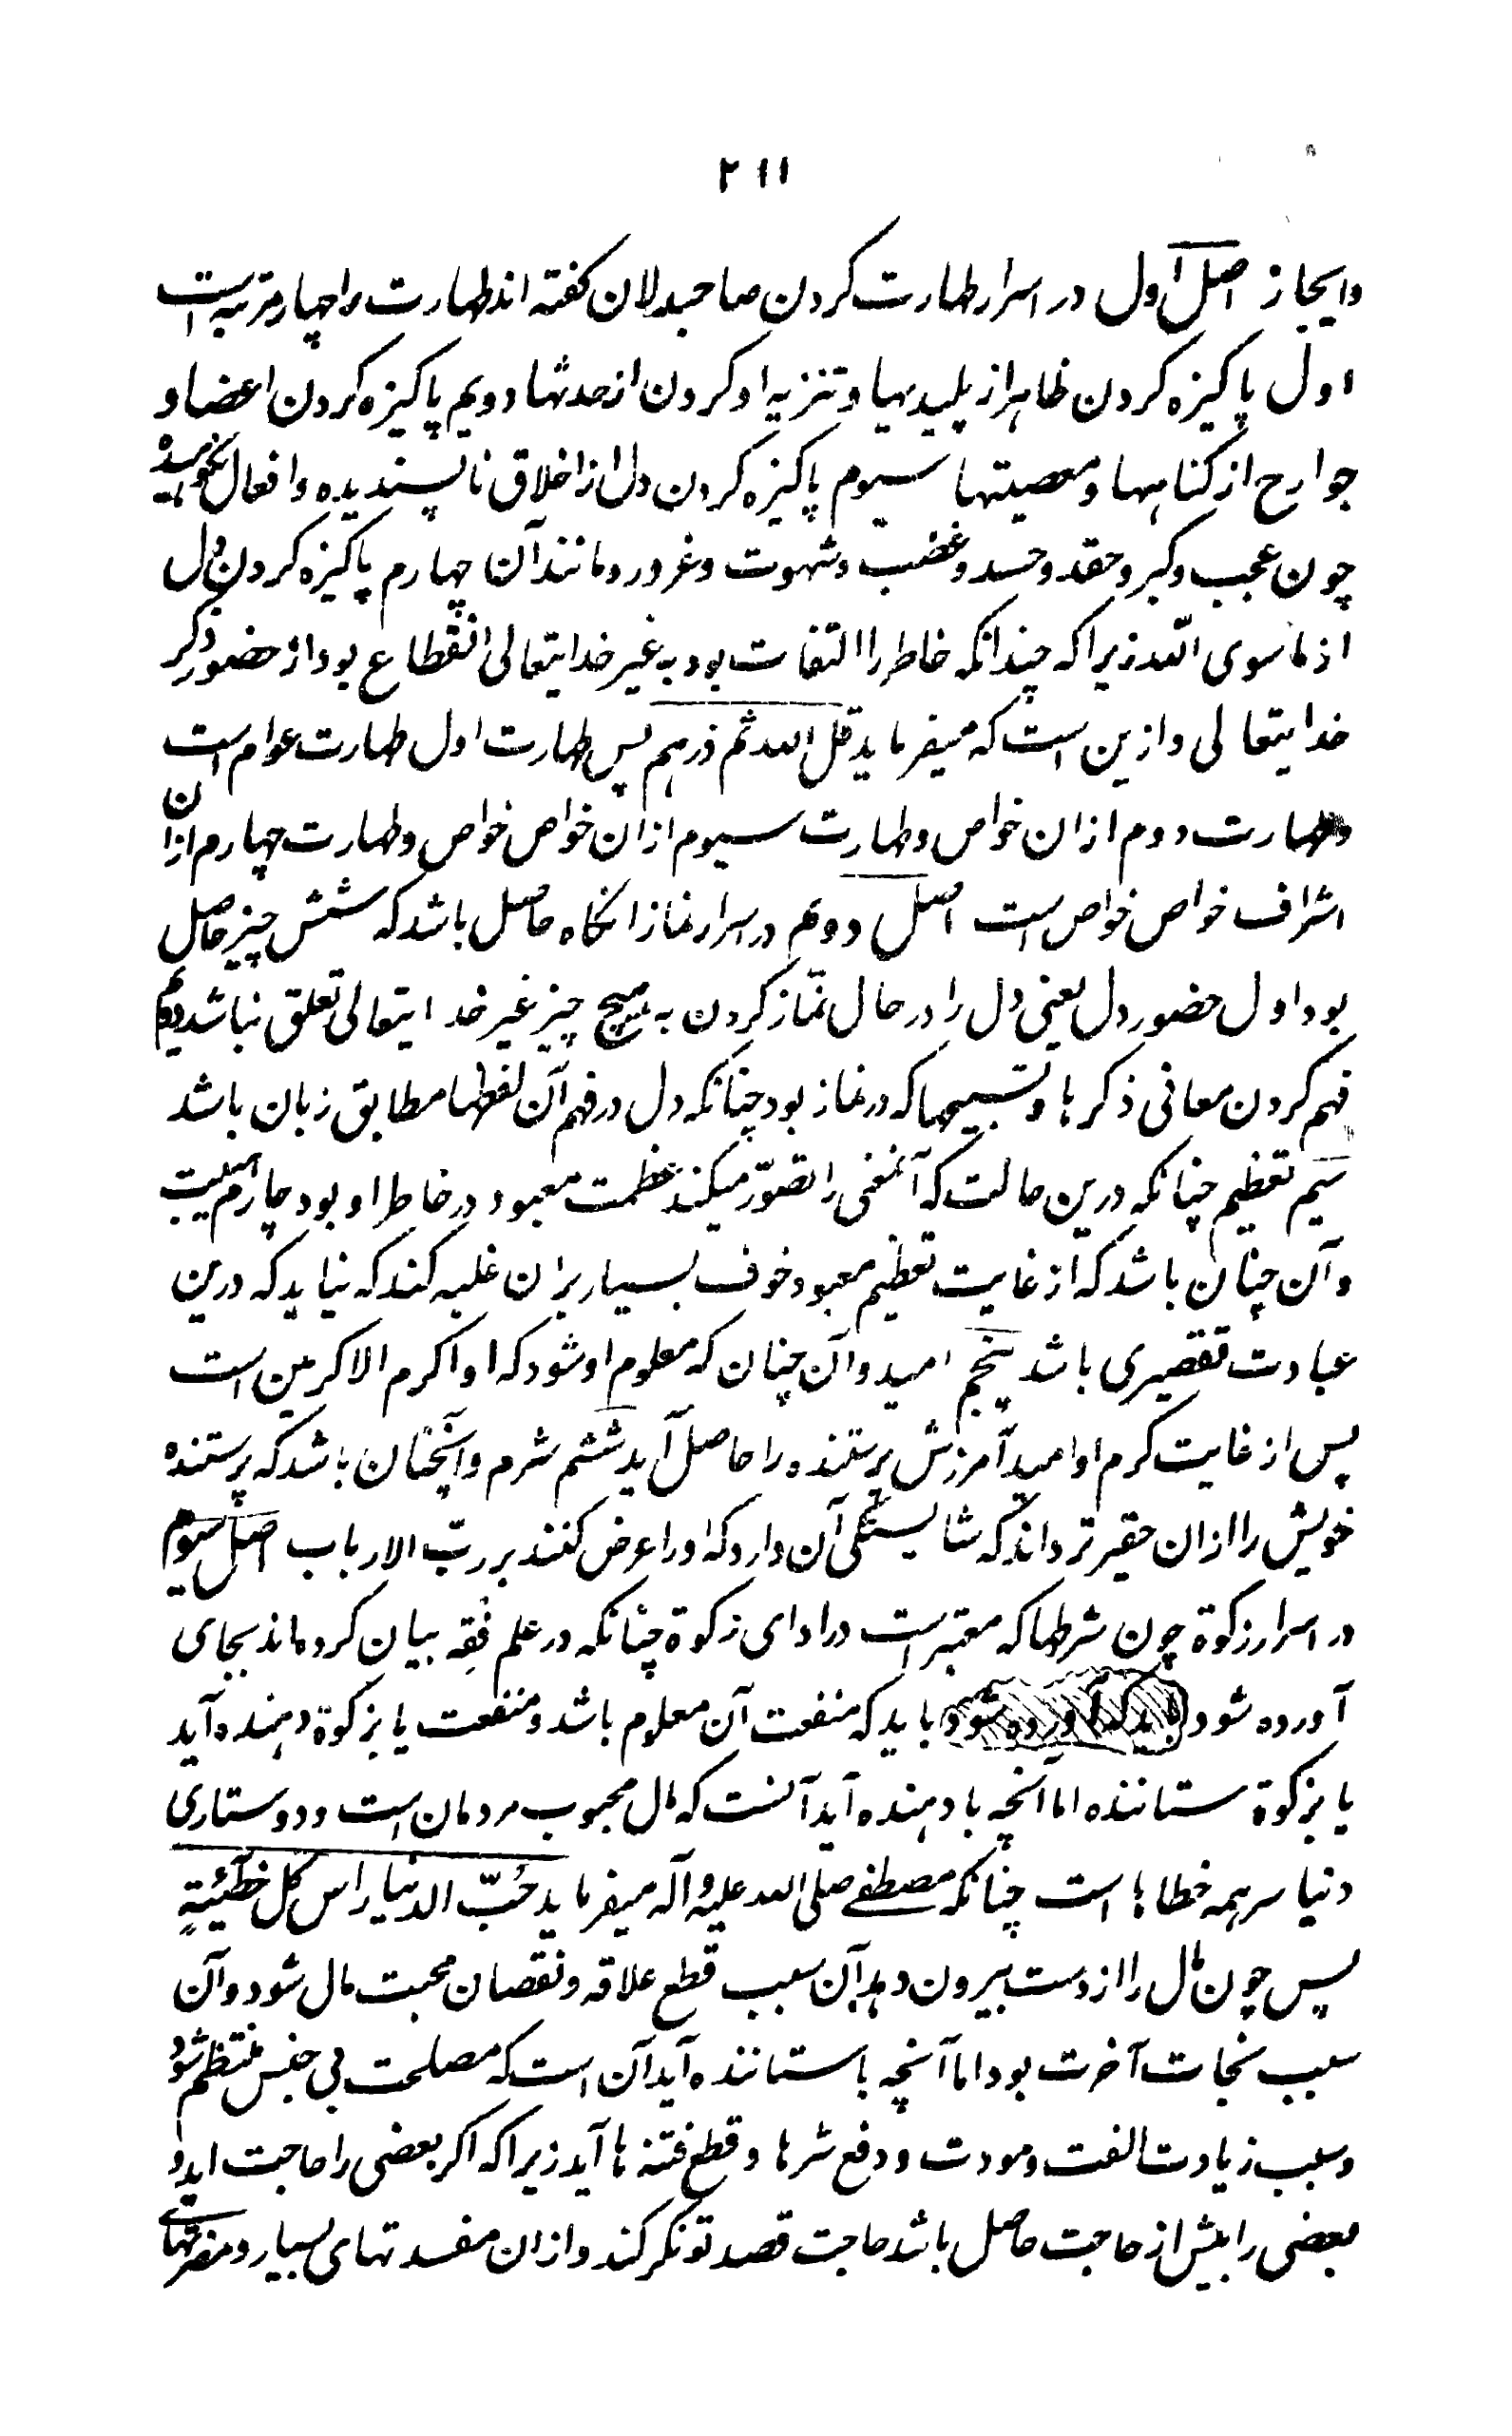 ۲۱۱
وایجاز اصل اول در اسرار طهارت کردن صاحبدلان کفته اند طهارت را چهار مرتبه است
اول پاکیزه کردن ظاهر از پلیدیها و تنزیه او کردن از حدثها دویم پاکیزه کردن اعضا و
جوارح از کناهها و معصیتها سیوم پاکیزه کردن دل از اخلاق ناپسندیده و افعال نکوهیده
چون عجب و کبر و حقد و حسد و غضب و شهوت و غرور و مانند آن چهارم پاکیزه کردن دل
از ماسوی الله زیرا که چندانکه خاطر را التفات بود به غیر خدایتعالی انقطاع بود از حضور ذکر
خدایتعالی و ازین است که میفرماید قل الله ثم ذرهم پس طهارت اول طهارت عوام است
و طهارت دوم از ان خواص و طهارت سیوم از ان خواص خواص و طهارت چهارم از ان
اشراف خواص خواص است اصل دویم در اسرار نماز انکاه حاصل باشد که شش چیز حاصل
بود اول حضور دل یعنی دل را در حال نماز کردن به هیچ چیز غیر خدایتعالی تعلق نباشد دویم
فهم کردن معانی ذکرها و تسبیحها که در نماز بود چنانکه دل در فهم آن لفظها مطابق زبان باشد
سیم تعظیم چنانکه درین حالت که آنمعنی را تصوّر میکند عظمت معبود در خاطر او بود چارم هیبت
و آن چنان باشد که از غایت تعظیم معبود خوف بسیار بران غلبه کند که نباید که درین
عبادت تقصیری باشد پنجم امید و آن چنان که معلوم او شود که او اکرم الاکرمین است
پس از غایت کرم او امید آمرزش پرستنده را حاصل آید ششم شرم و آنچنان باشد که پرستنده
خویش را ازان حقیرتر داند که شایستکی آن دارد که او را عرض کنند بر ربّ الارباب اصل سیوم
در اسرار زکوة چون شرطها که معتبر است در ادای زکوة چنانکه در علم فقه بیان کرده اند بجای
آورده شود باید که منفعت آن معلوم باشد و منفعت یا بزکوة دهنده آید
یا بزکوة ستاننده اما آنچه با دهنده آید آنست که مال محبوب مردمان است و دوستاری
دنیا سر همه خطاها است چنانکه مصطفے صلی الله علیه و آله میفرماید حُبّ الدنیا راس کل خطیئیةٍ
پس چون مال را از دست بیرون دهد آن سبب قطع علاقه و نقصان محبت مال شود و آن
سبب نجات آخرت بود اما آنچه با ستاننده آید آن است که مصلحت بی جنس منتظم شود
و سبب زیادت الفت و مودت و دفع شرها و قطع فتنه ها آید زیرا که اکر بعضی را حاجت اید و
بعضی را بیش از حاجت حاصل باشد حاجت قصد تونکر کند و ازان مفسدتهای بسیار و مضرتهای